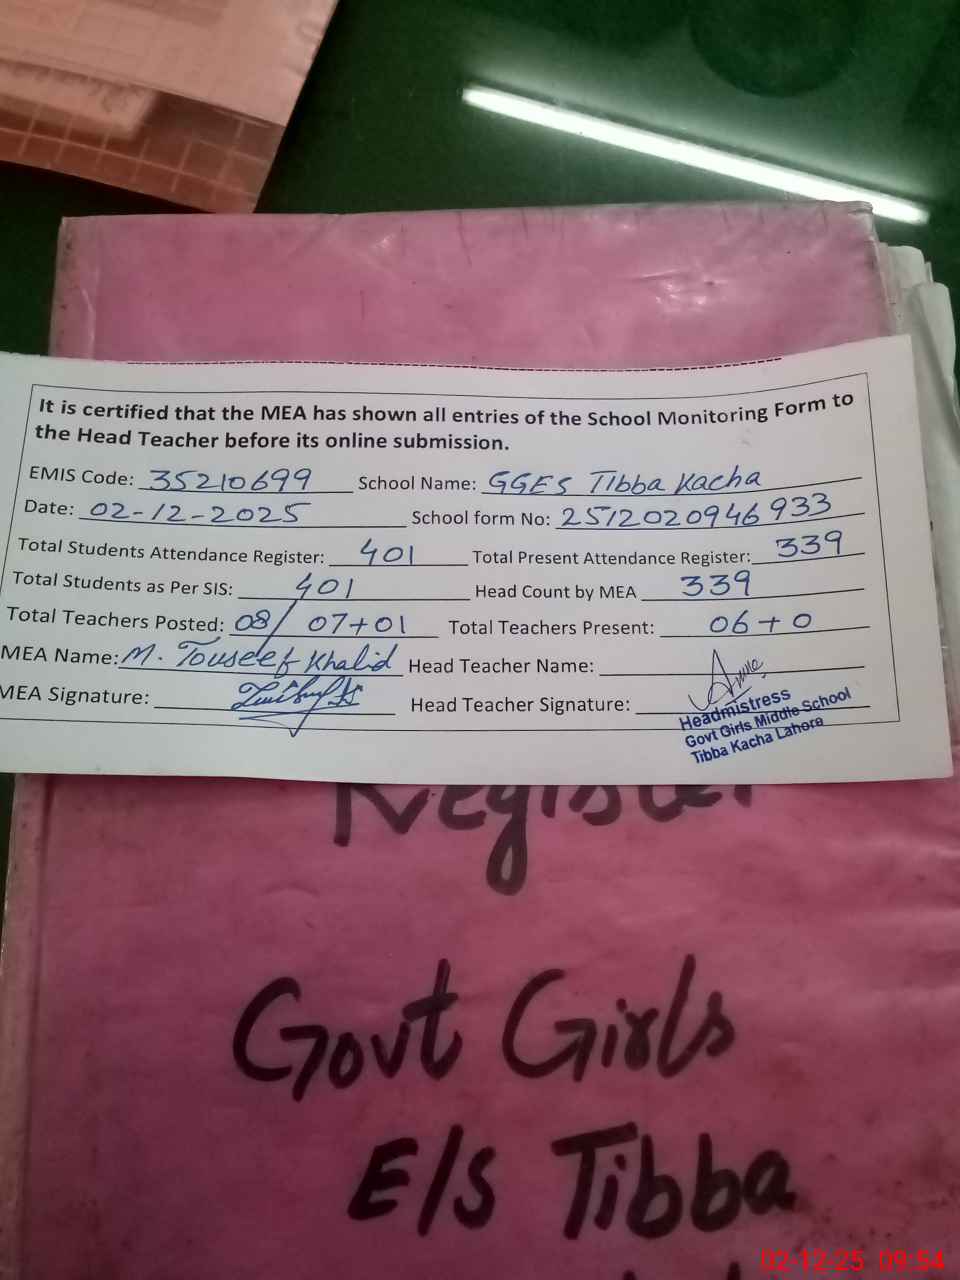 It is certified that the MEA has shown all entries of the School Monitoring Form to
the Head Teacher before its online submission.
EMIS Code: 35210699 School Name: GGES Tibba Kacha
Date: 02-12-2025 School form No: 2512020946933
Total Students Attendance Register: 401 Total Present Attendance Register: 339
Total Students as Per SIS: 401 Head Count by MEA 339
Total Teachers Posted: 08/ 07+01 Total Teachers Present: 06+0
MEA Name: M. Touseef Khalid Head Teacher Name:
MEA Signature: Head Teacher Signature:
Headmistress
Govt Girls Middle School
Tibba Kacha Lahore
Register
Govt Girls
E/S Tibba
02-12-25 09:54